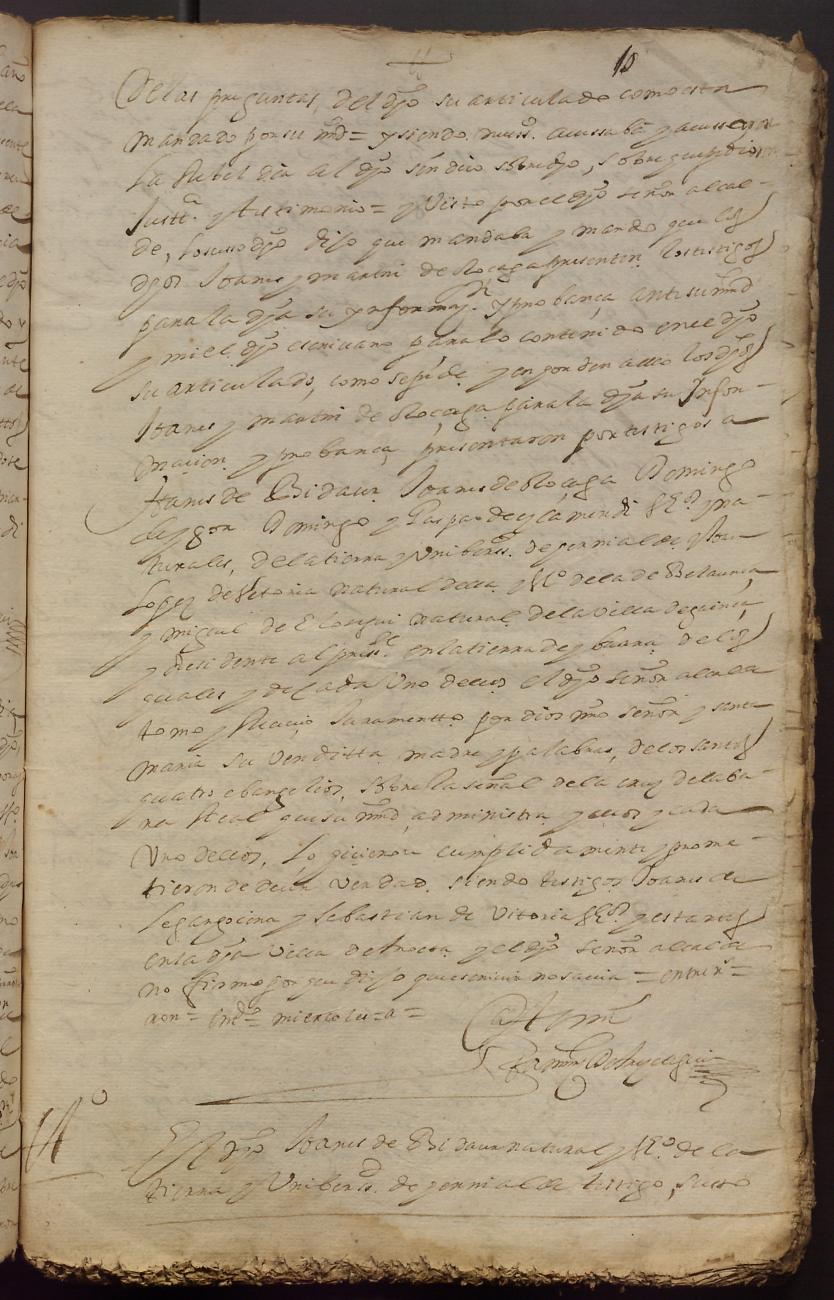 10
De las preguntas, del dho su articulado como esta
mandado por su md = y siendo acussaba y acussaron
La Rebeldia al dho sindico sobredho, sobre que pidio
Justt.ª y testimonio = y Visto por el dho señor alcal-
de, Lo susodho dijo que mandaba y mando que los
dhos Joanes y martin de presenten los testigos
para la dha su ynformaçon y probança ante su md
y mi el dho escrivano para lo contenido en el dho
su articulado, como se pide y en horden a ello los dhos
Joanes y martin de para la dha su Infor-
macion y probança, presentaron por testigos a
Joanes de Bidaur Joanes de Domingo
de Domingo y Gaspar de yçamendi V.º y na-
turales, de la tierra y Unibersi.d de y Joan
Lopez de Vitoria natural della y V.º de la de Belaunça
y miguel de Elosegui natural de la Villa de gainça
y Residente al press.te en la tierra de ybarra de los
quales y de cada Uno dellos el dho señor alcalde
tomo y Recivio Juramentto por dios nro señor y santa
maria su venditta madre y palabras, de los santos
quatro ebangelios, sobre la señal de la cruz de la ba-
ra Real que su md, administra y ellos y cada
Uno dellos, Lo hicieron cumplidamente y prome-
tieron de decir verdad. siendo testigos Joanes de
y Sebastian de Vitoria V.os y estantes
en la dha Villa de y el dho señor alcalde
no firmo por que dijo que escrivir no savia = entre Rs =
ron =
Ante mi
El dho Joanes de Bidaur natural y V.º de la
tierra y Unibersi.d de testigo, susso